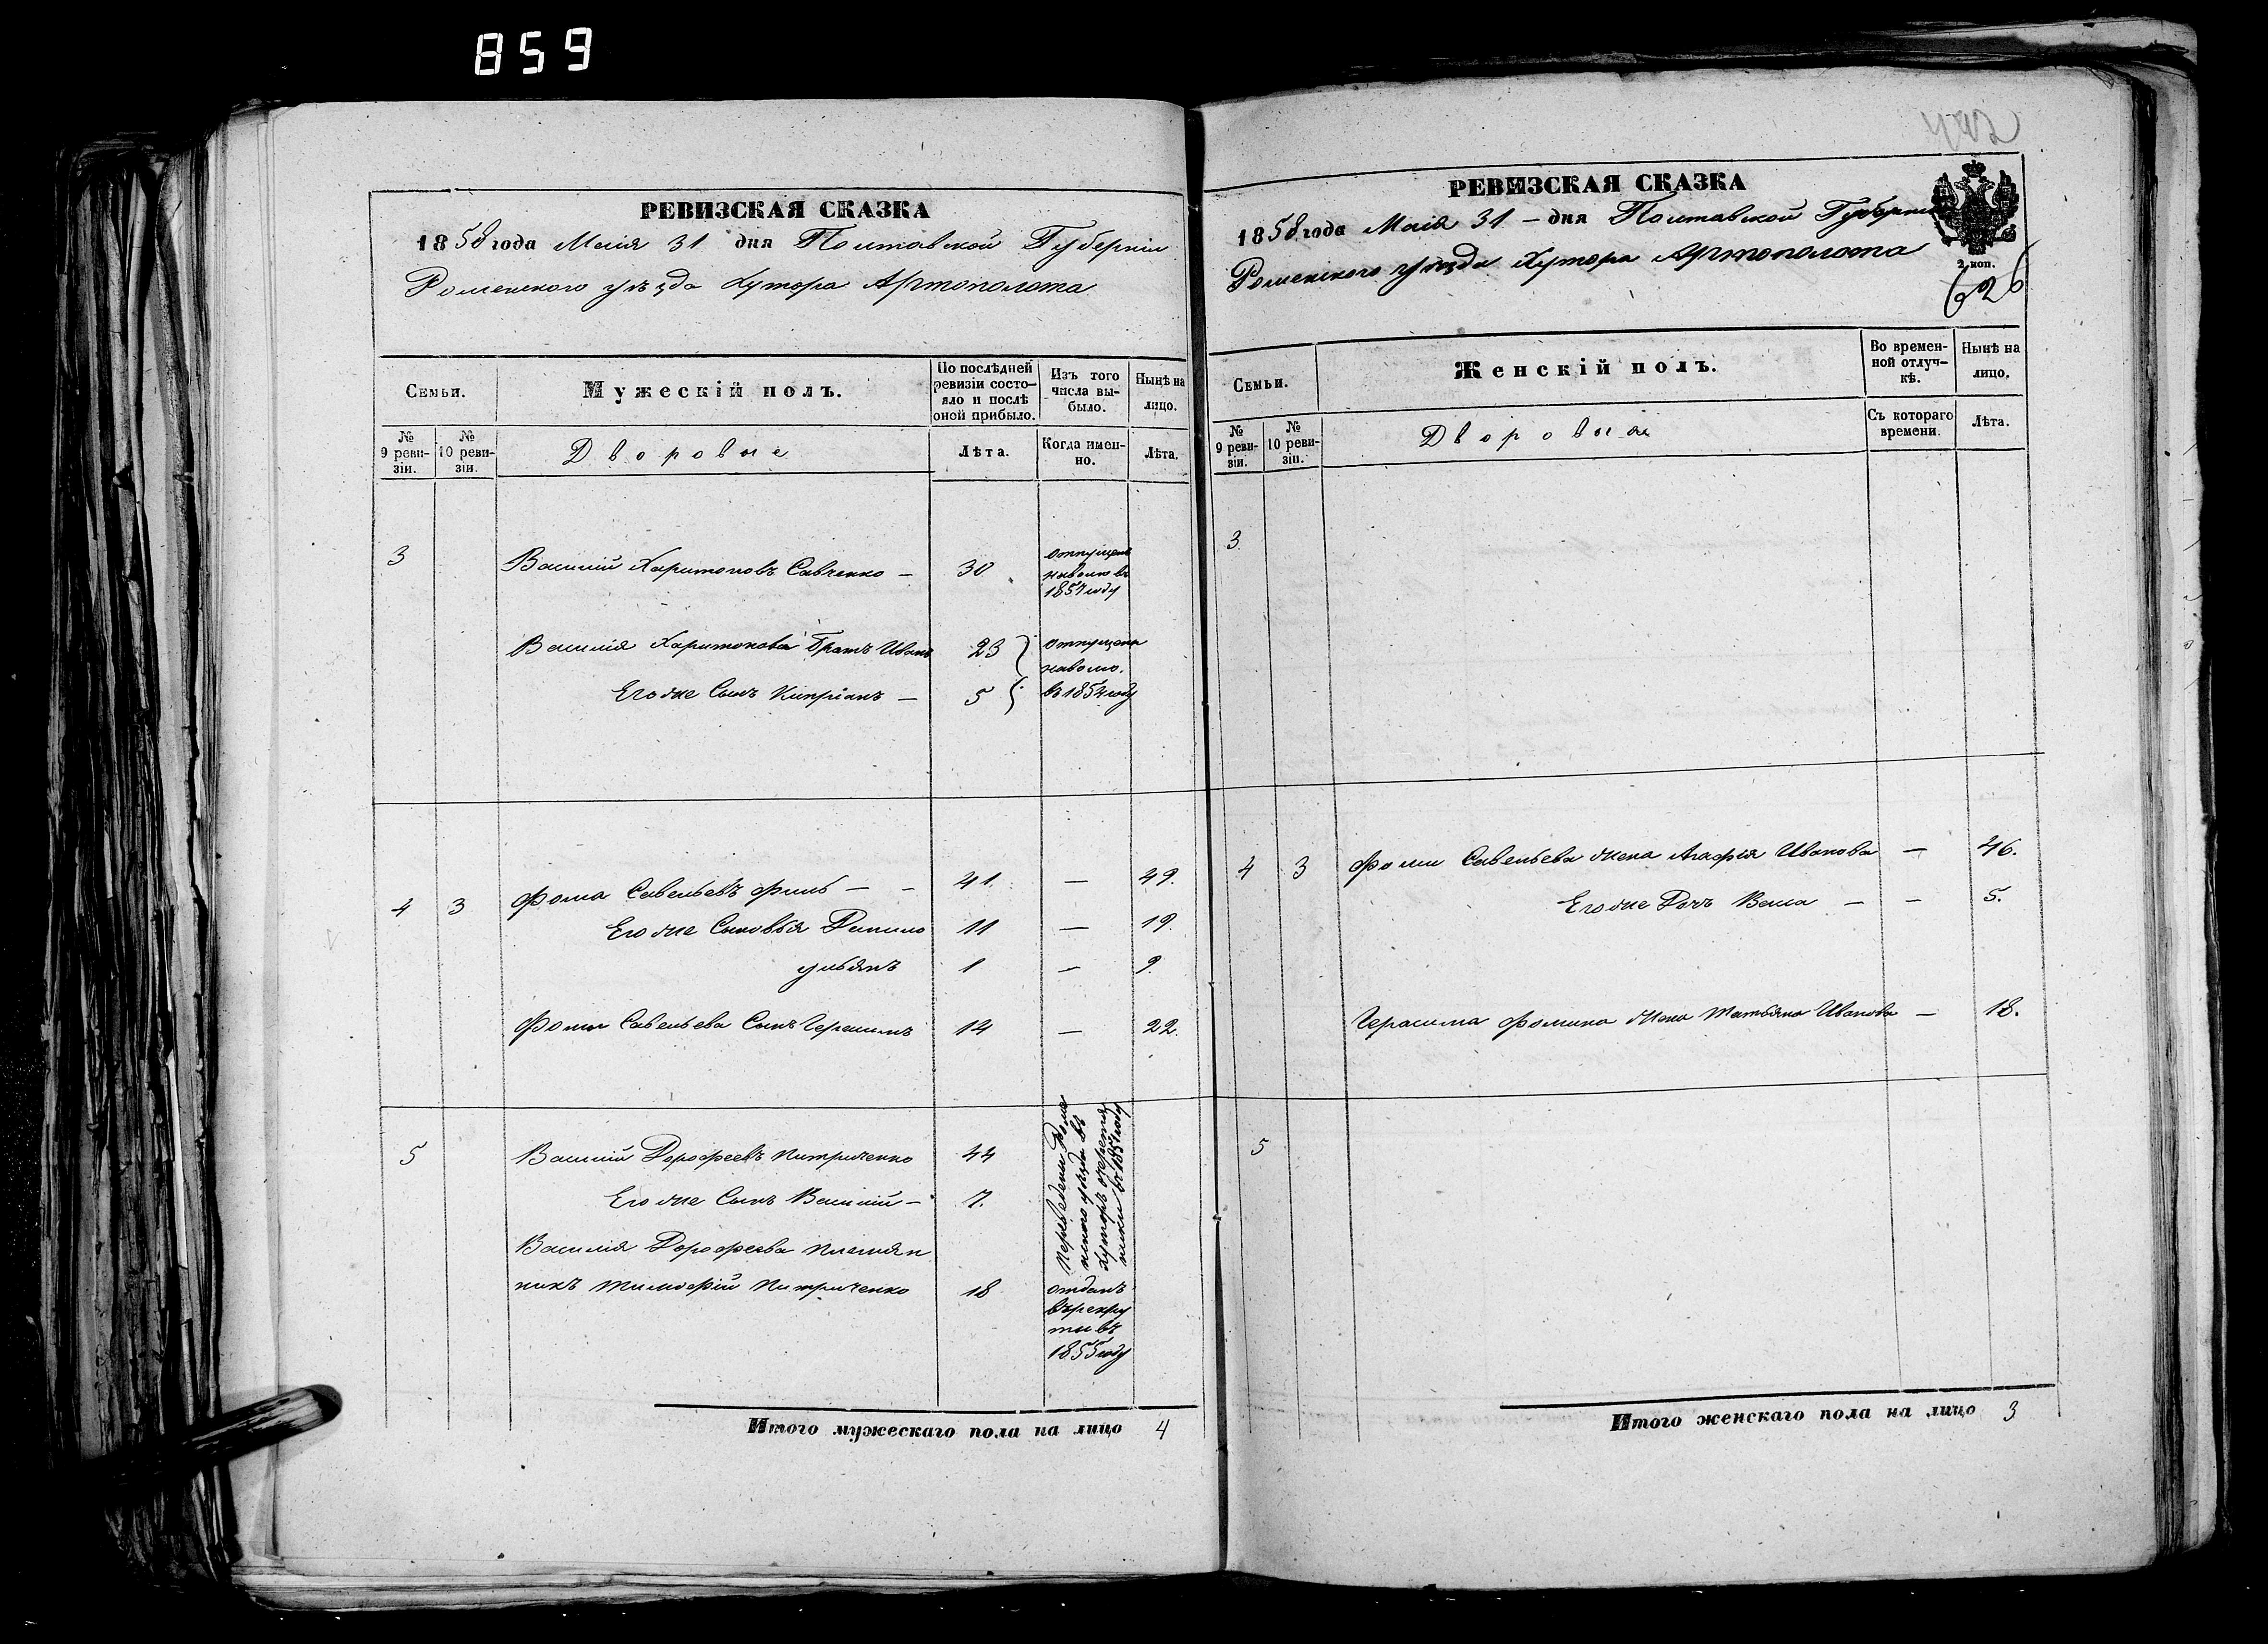 859
РЕВИЗСКАЯ СКАЗКА
1858 года Маія 31 дня Полтавской Губерніи
Роменского уѣзда Хутора Артополота
Семьи.
Мужескій полъ.
По послѣдней ревизіи состо-
яло и послѣ
оной прибыло.
Изъ того
числа вы-
было.
Нынѣ на
лицо.
№
9 реви-
зіи.
№
10 реви-
зіи.
Дворовые
Лѣта.
Когда имен-
но.
Лѣта.
3
Василій Харитоновъ Савченко —
30
отпущенъ
наволю въ
1857 году
Василія Харитонова братъ Иванъ
23
отпущены
наволю.
Его же Сынъ Кипріанъ —
5
въ 1854 году
4 3 Фома Савельевъ — — 41. — 49.
Его же Сыновья Данило 11 — 19.
Ульянъ 1 — 9.
Фомы Савельева Сынъ Герасимъ 14 — 22.
5 Василій Дорофеевъ Питриченко 44
Его же Сынъ Василій — 7.
переведены Роме
нского уѣзда въ
Хуторъ
въ 1857 году
Василія Дорофеева племян
никъ Тимофій Питриченко 18
отданъ
въ рекру
ты въ
1855 году
Итого мужескаго пола на лицо 4
РЕВИЗСКАЯ СКАЗКА
1858 года Маія 31 — дня Полтавской Губерніи
Роменского уѣзда Хутора Артополота
2 коп.
626
Семьи.
Женскій полъ.
Во времен-
ной отлуч-
кѣ.
Нынѣ на
лицо.
№
9 реви-
зіи.
№
10 реви-
зіи.
Дворовыя
Съ котораго
времени.
Лѣта.
3
4 3 Фомы Савельева жена Агафія Иванова — 46.
Его же Дочь Васса — — 5.
Герасима Фомина жена Татьяна Иванова — 18.
5
Итого женскаго пола на лицо 3